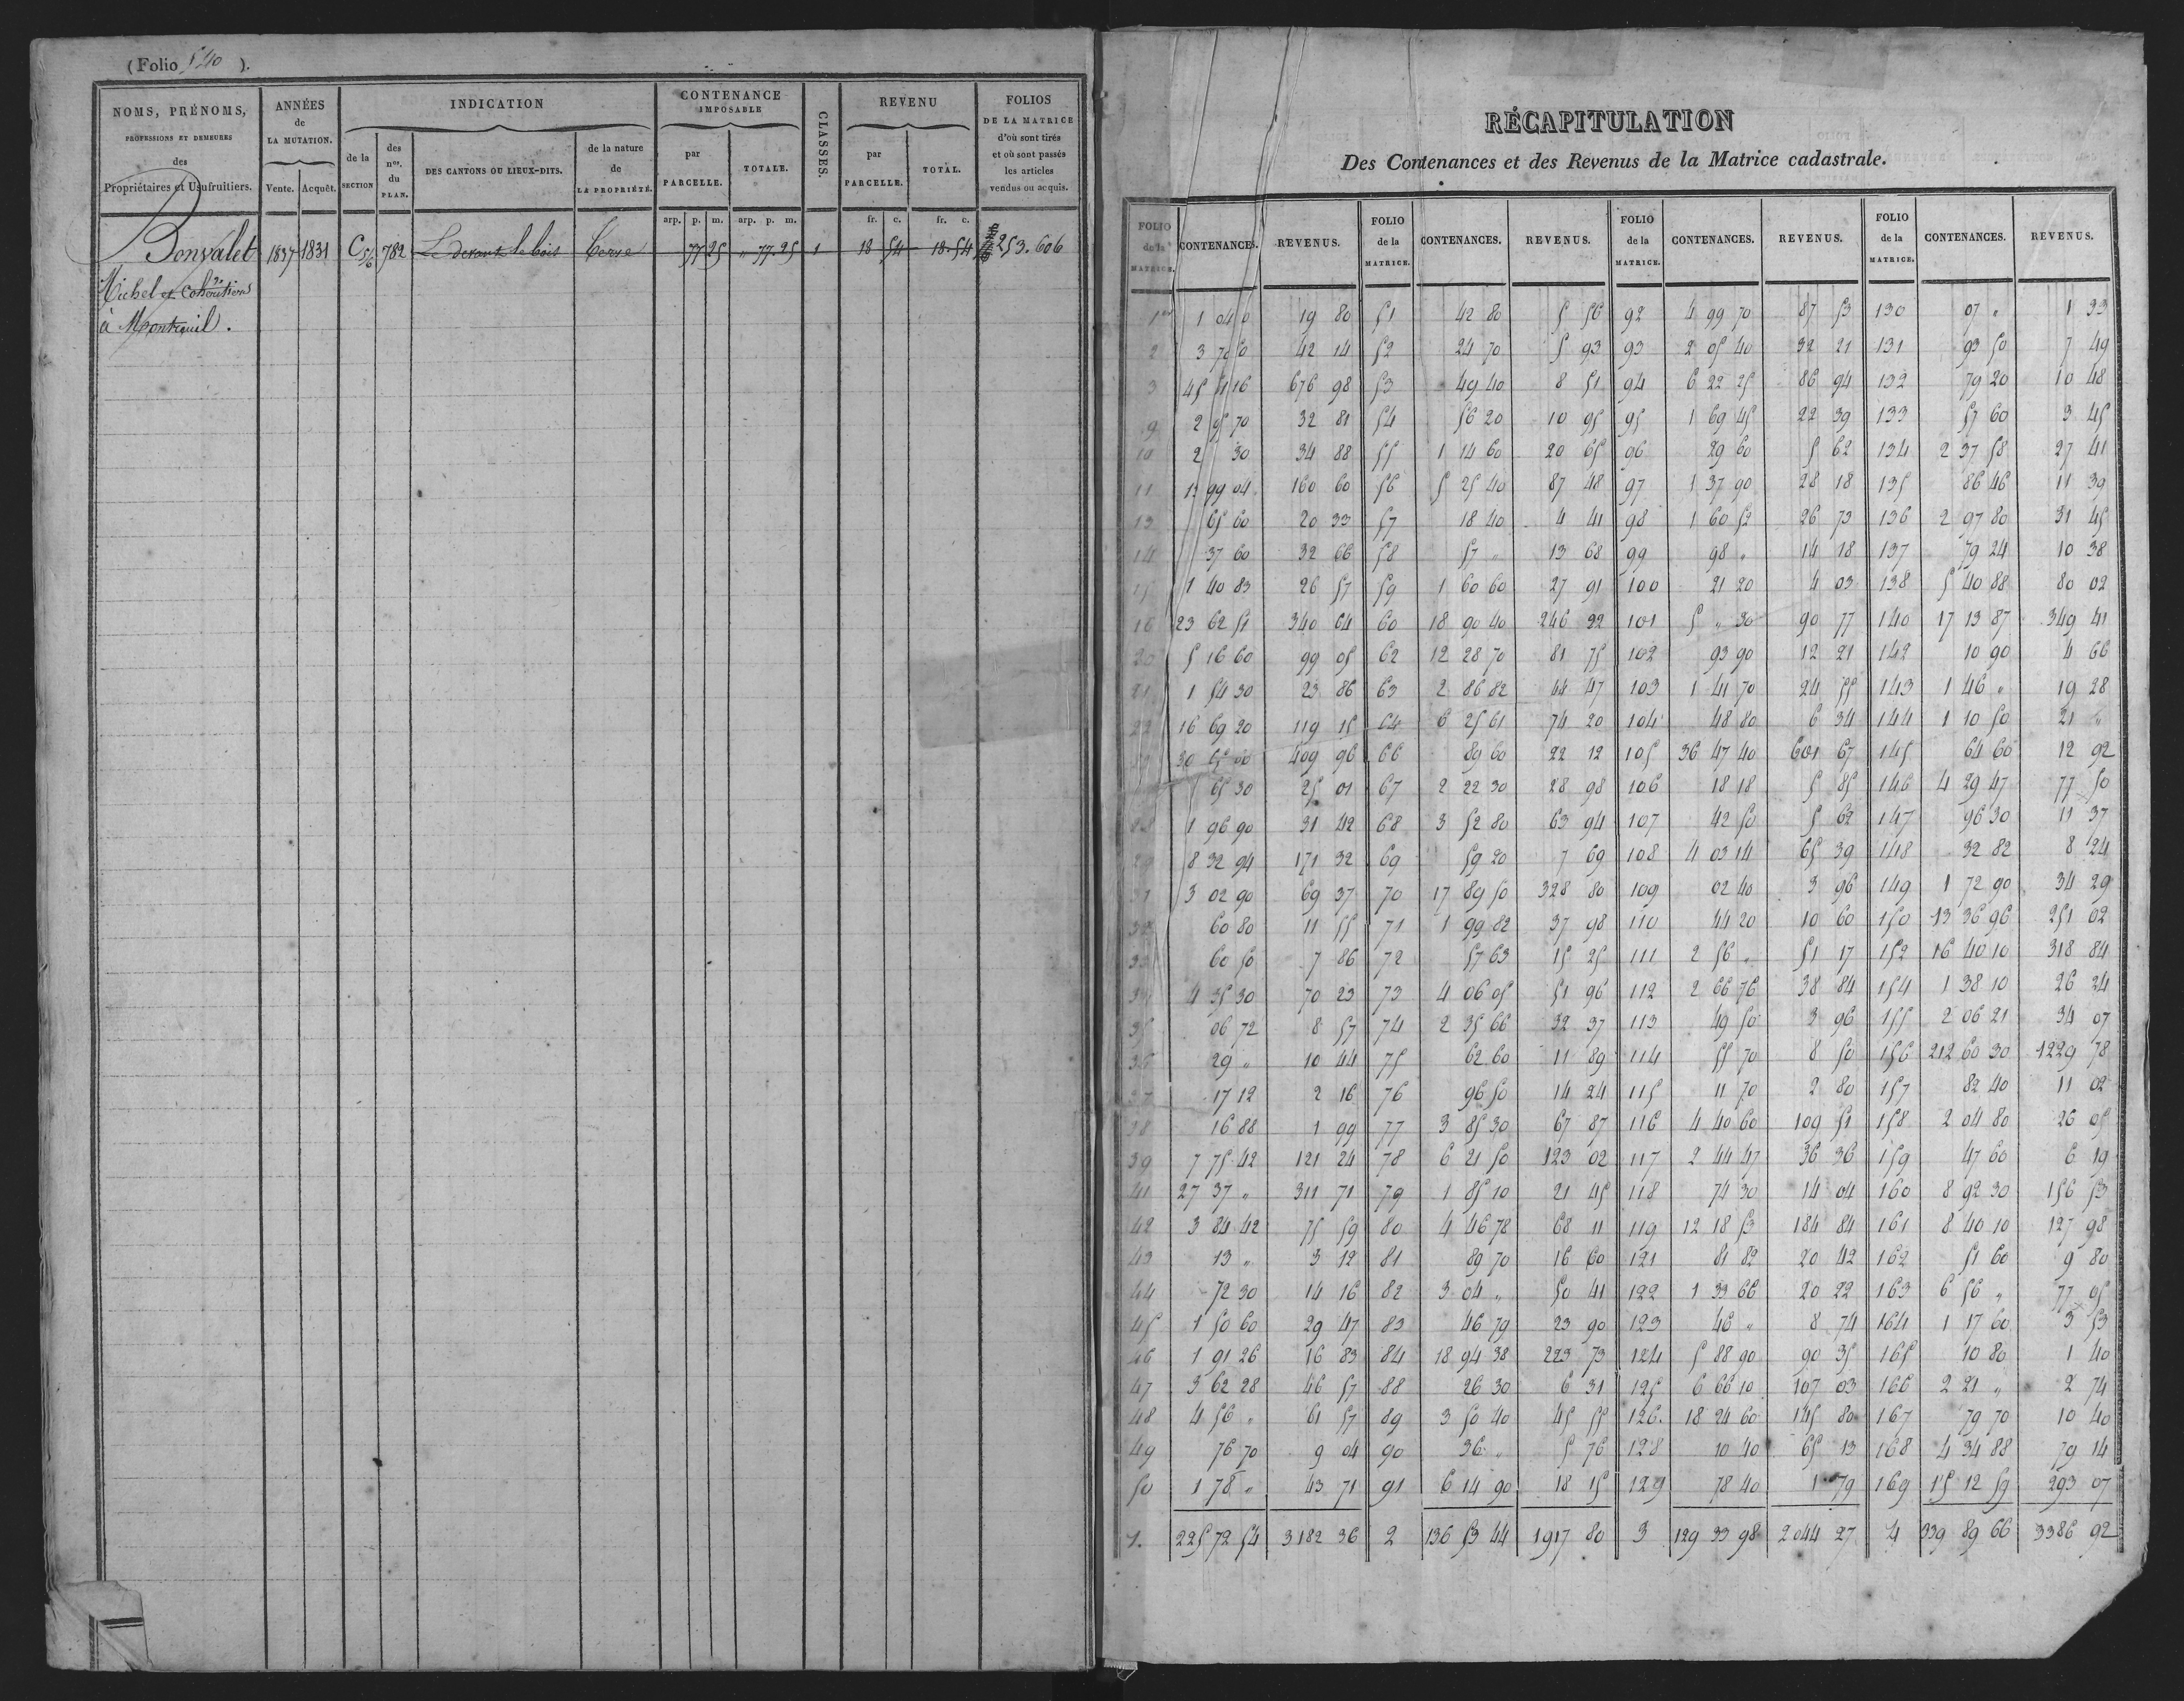 (Folio 540 ).
NOMS, PRÉNOMS,
PROFESSIONS ET DEMEURES
des
Propriétaires et Usufruitiers.
ANNÉES
de
LA MUTATION.
Vente. Acquêt.
INDICATION
de la
SECTION
des
nos.
du
PLAN.
DES CANTONS OU LIEUX-DITS.
de la nature
de
LA PROPRIÉTÉ.
CONTENANCE
IMPOSABLE
par
PARCELLE.
TOTALE.
CLASSES.
REVENU
par
PARCELLE.
TOTAL.
FOLIOS
DE LA MATRICE
d'où sont tirés
et où sont passés
les articles
vendus ou acquis.
arp. p. m. arp. p. m. fr. c. fr. c.
Bonvalet 1837 1831 C 782 Le devant le bois terre 77 25 " 77. 25 1 18 54 18. 54 253. 606
Michel et
à Montreuil.
RÉCAPITULATION
Des Contenances et des Revenus de la Matrice cadastrale.
FOLIO de la MATRICE. CONTENANCES. REVENUS. FOLIO de la MATRICE. CONTENANCES. REVENUS. FOLIO de la MATRICE. CONTENANCES. REVENUS. FOLIO de la MATRICE. CONTENANCES. REVENUS.
1er 1 04 0 19 80 51 42 80 5 56 92 4 99 70 87 53 130 07 " 1 33
2 3 70 50 42 14 52 24 70 5 93 93 2 05 40 32 21 131 93 50 7 49
3 45 16 676 98 53 49 40 8 51 94 6 22 25 86 94 132 79 20 10 48
9 2 70 32 81 54 56 20 10 95 95 1 69 45 22 39 133 57 60 3 45
10 2 30 34 88 55 1 14 60 20 65 96 29 60 5 62 134 2 37 58 27 41
11 12 99 04 160 60 56 5 25 40 87 48 97 1 37 90 28 18 135 86 46 11 39
13 65 60 20 33 57 18 40 4 41 98 1 60 52 26 73 136 2 97 80 31 45
14 37 60 32 66 58 57 " 13 68 99 98 " 14 18 137 79 24 10 38
15 1 40 83 26 57 59 1 60 60 27 91 100 21 20 4 03 138 5 40 88 80 02
16 23 62 51 340 64 60 18 90 40 246 22 101 5 " 30 90 77 140 17 13 87 349 41
20 5 16 60 99 05 62 12 28 70 81 75 102 93 90 12 21 142 10 90 4 66
21 1 54 30 23 86 63 2 86 82 44 47 103 1 41 70 24 55 143 1 46 " 19 28
22 16 69 20 119 15 64 6 25 61 74 20 104 48 80 6 34 144 1 10 50 21 "
30 65 00 409 96 66 89 60 22 12 105 36 47 40 601 67 145 64 60 12 92
65 30 25 01 67 2 22 30 28 98 106 18 18 5 85 146 4 29 47 77 50
28 1 96 90 31 42 68 3 52 80 63 94 107 42 50 5 62 147 96 30 11 37
29 8 32 94 171 32 69 59 20 7 69 108 4 03 14 65 39 148 32 82 8 24
31 3 02 90 69 37 70 17 89 50 328 80 109 02 40 3 96 149 1 72 90 34 29
32 60 80 11 55 71 1 99 82 37 98 110 44 20 10 60 150 13 36 96 251 02
33 60 50 7 86 72 57 63 15 25 111 2 56 " 51 17 152 16 40 10 318 84
34 4 35 30 70 23 73 4 06 05 51 96 112 2 66 76 38 84 154 1 38 10 26 24
35 06 72 8 57 74 2 35 66 32 37 113 49 50 3 96 155 2 06 21 34 07
36 29 " 10 44 75 62 60 11 89 114 55 70 8 50 156 212 60 30 1229 78
37 17 12 2 16 76 96 50 14 24 115 11 70 2 80 157 82 40 11 02
38 16 88 1 99 77 3 85 30 67 87 116 4 40 60 109 51 158 2 04 80 26 05
39 7 75 42 121 24 78 6 21 50 123 02 117 2 44 47 36 36 159 47 60 6 19
41 27 37 " 311 71 79 1 85 10 21 45 118 74 30 14 04 160 8 92 30 156 53
42 3 84 42 75 59 80 4 46 78 68 11 119 12 18 53 184 84 161 8 40 10 127 98
43 13 " 3 12 81 89 70 16 60 121 81 82 20 42 162 51 60 9 80
44 72 30 14 16 82 3 04 " 50 41 122 1 33 66 20 22 163 6 56 " 77 05
45 1 50 60 29 47 83 46 79 23 90 123 46 " 8 74 164 1 17 60 3 53
46 1 91 26 16 83 84 18 94 38 223 73 124 5 88 90 90 35 165 10 80 1 40
47 3 62 28 46 57 88 26 30 6 31 125 6 66 10 107 03 166 2 21 " 2 74
48 4 56 " 61 57 89 3 50 40 45 55 126. 18 24 60 145 80 167 79 70 10 40
49 76 70 9 04 90 36 " 5 76 128 10 40 65 13 168 4 34 88 79 14
50 1 78 " 43 71 91 6 14 90 18 15 129 78 40 1 79 169 15 12 59 293 07
1. 225 72 54 3182 36 2 136 53 44 1917 80 3 129 33 98 2044 27 4 339 89 66 3386 92